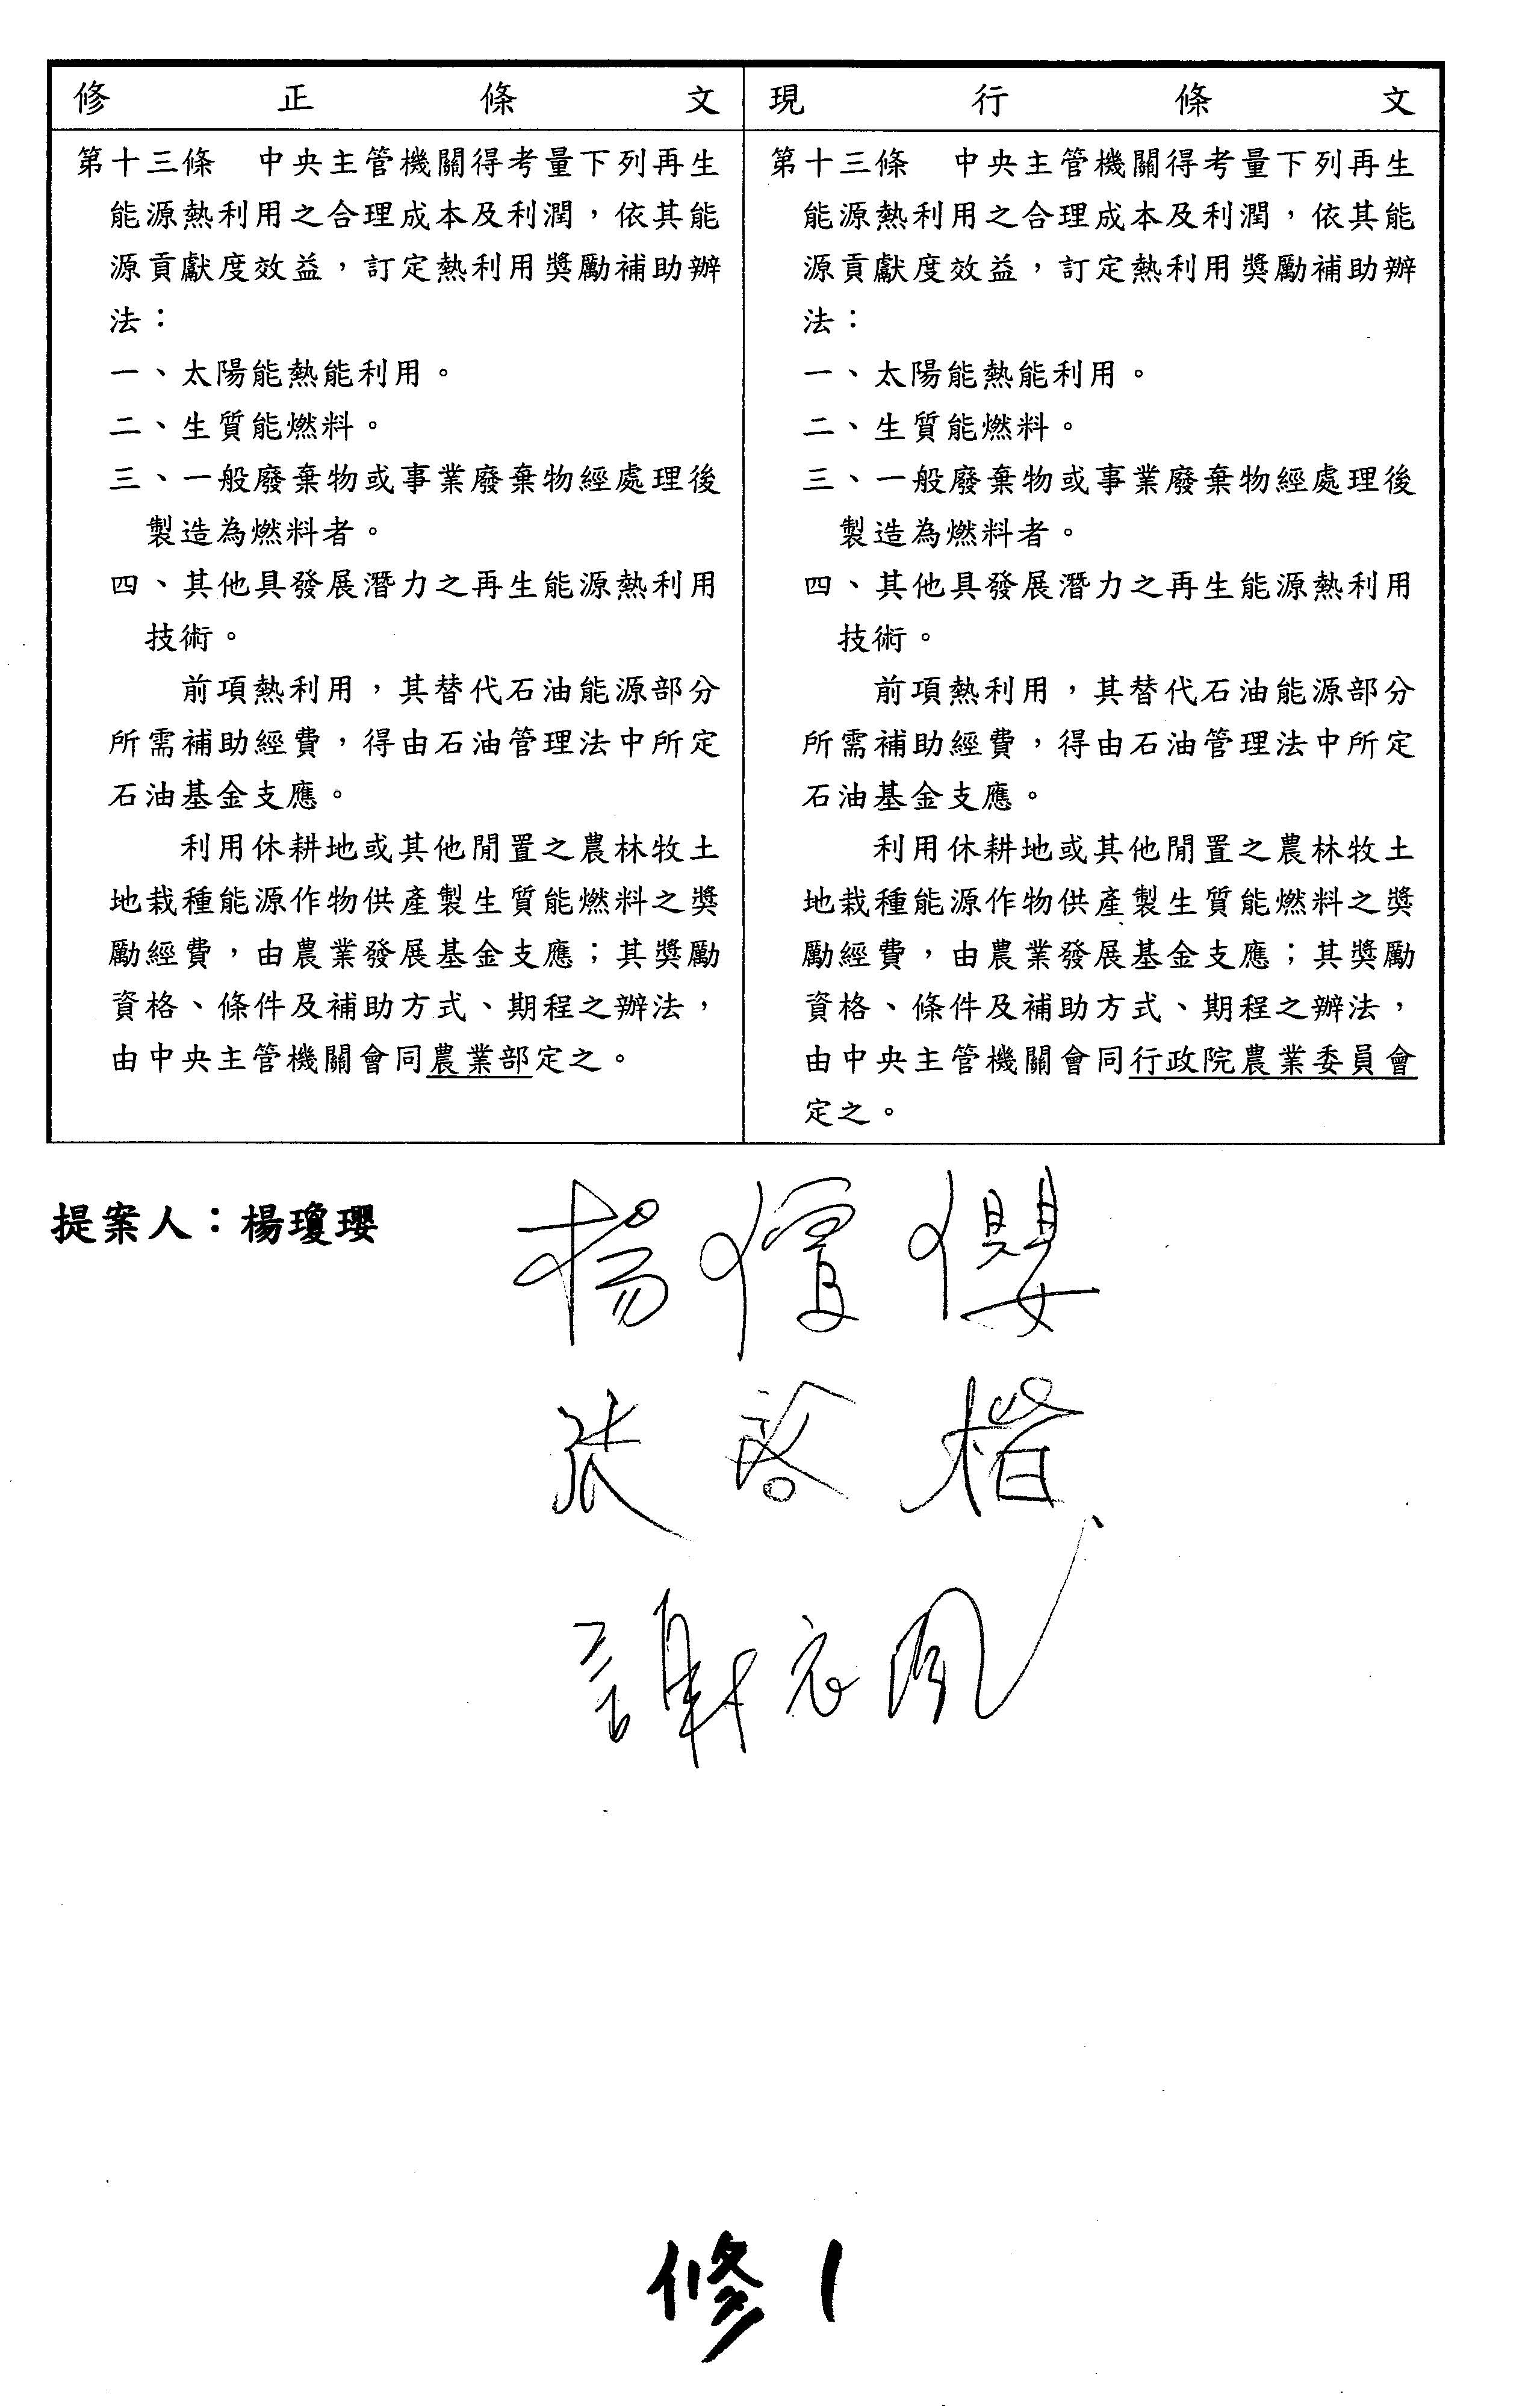 修正條文
第十三條　中央主管機關得考量下列再生
能源熱利用之合理成本及利潤，依其能
源貢獻度效益，訂定熱利用獎勵補助辦
法：
一、太陽能熱能利用。
二、生質能燃料。
三、一般廢棄物或事業廢棄物經處理後
製造為燃料者。
四、其他具發展潛力之再生能源熱利用
技術。
前項熱利用，其替代石油能源部分
所需補助經費，得由石油管理法中所定
石油基金支應。
利用休耕地或其他閒置之農林牧土
地栽種能源作物供產製生質能燃料之獎
勵經費，由農業發展基金支應；其獎勵
資格、條件及補助方式、期程之辦法，
由中央主管機關會同農業部定之。
現行條文
第十三條　中央主管機關得考量下列再生
能源熱利用之合理成本及利潤，依其能
源貢獻度效益，訂定熱利用獎勵補助辦
法：
一、太陽能熱能利用。
二、生質能燃料。
三、一般廢棄物或事業廢棄物經處理後
製造為燃料者。
四、其他具發展潛力之再生能源熱利用
技術。
前項熱利用，其替代石油能源部分
所需補助經費，得由石油管理法中所定
石油基金支應。
利用休耕地或其他閒置之農林牧土
地栽種能源作物供產製生質能燃料之獎
勵經費，由農業發展基金支應；其獎勵
資格、條件及補助方式、期程之辦法，
由中央主管機關會同行政院農業委員會
定之。
提案人：楊瓊瓔
楊瓊瓔
張啓楷
謝衣鳳
修1